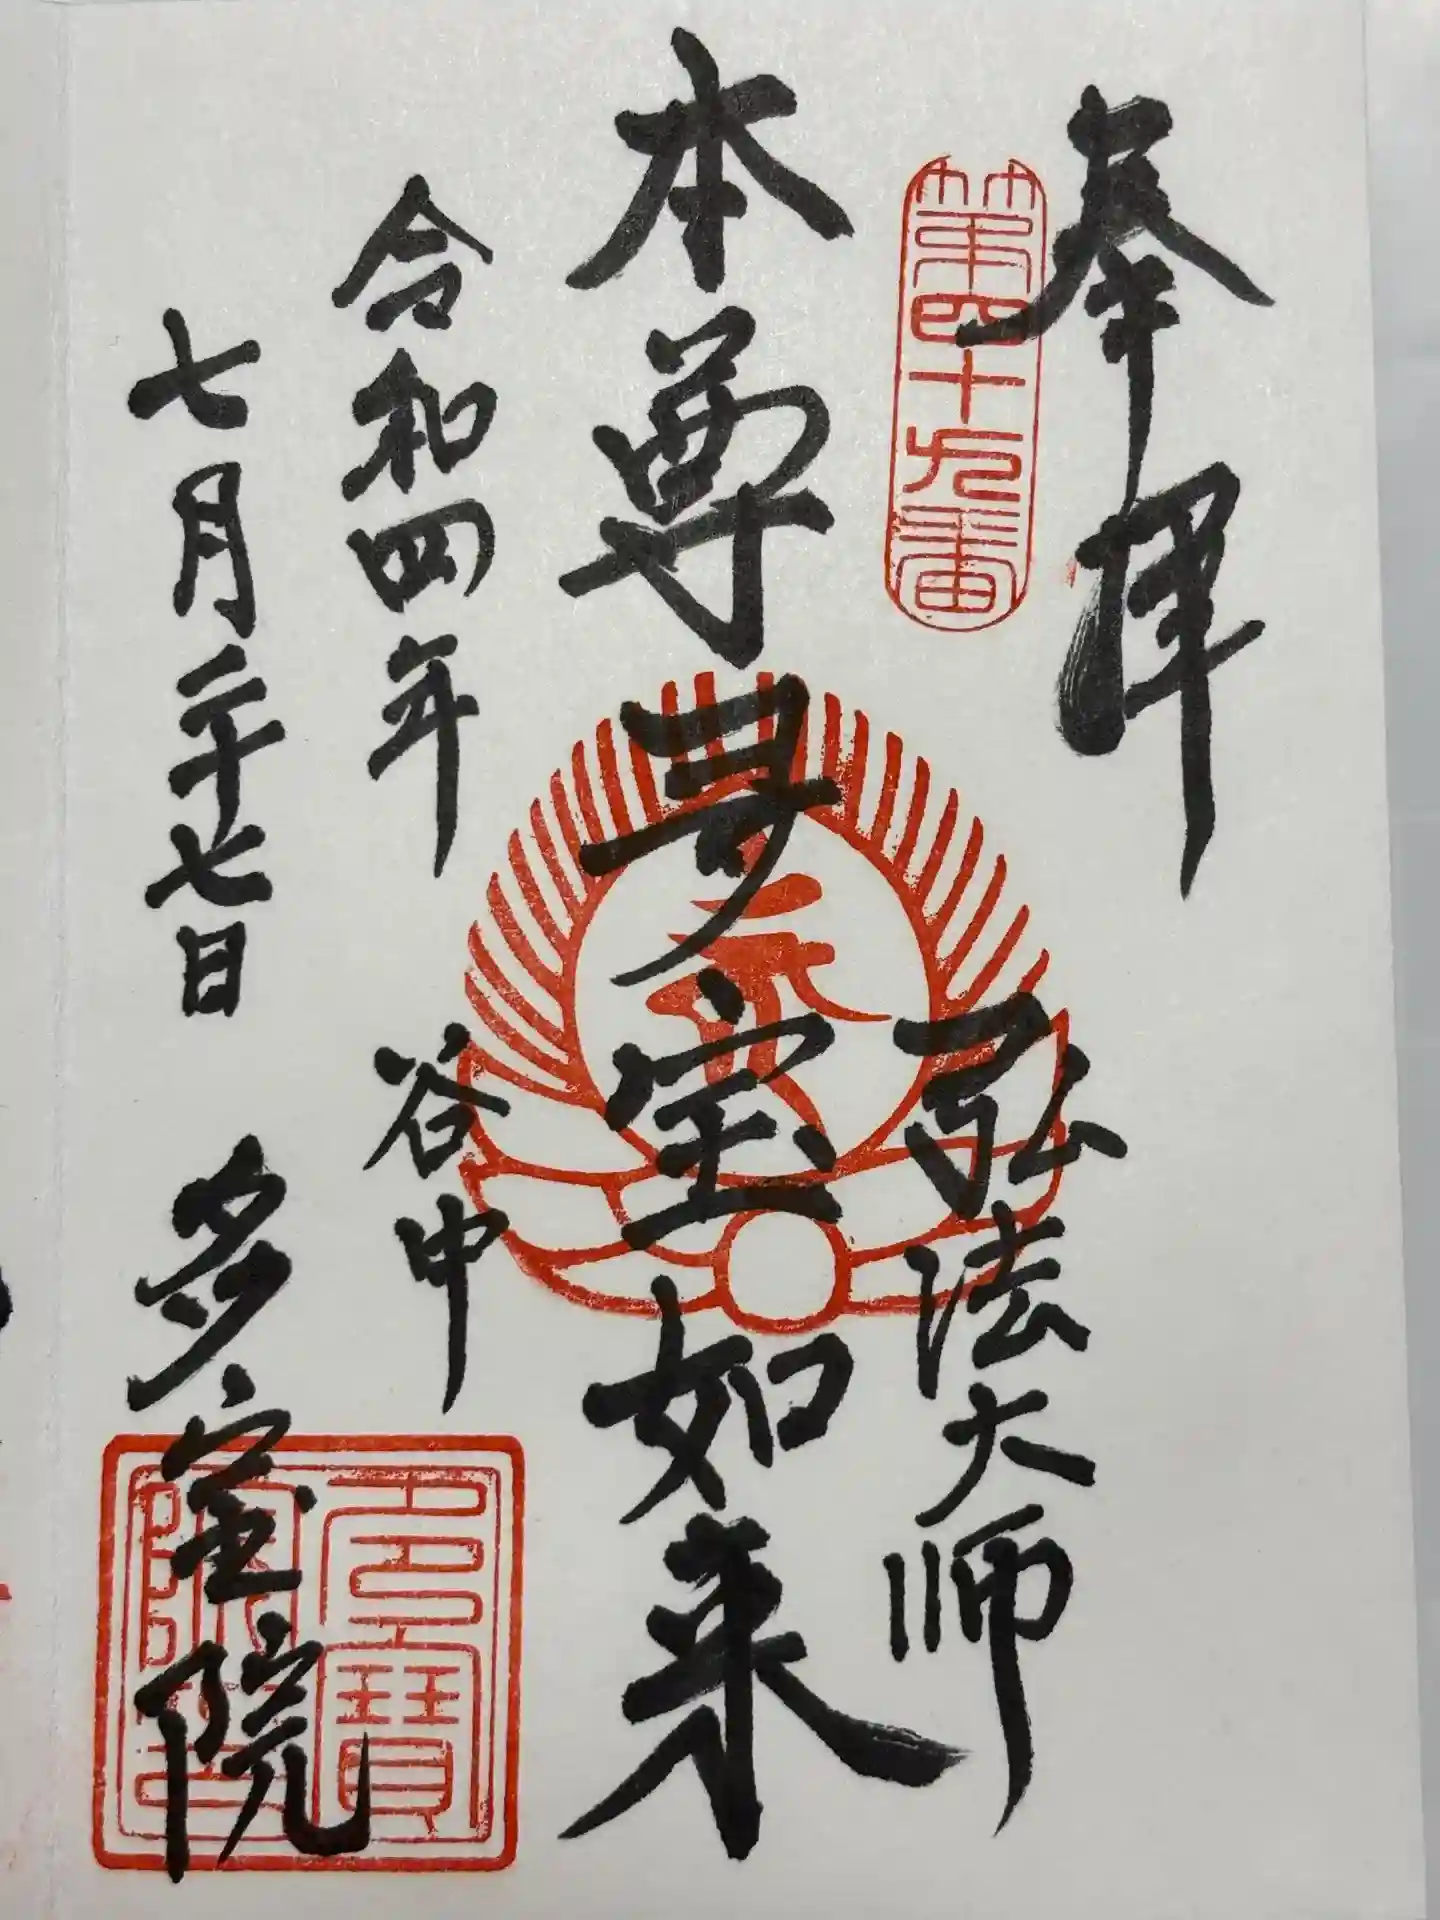 奉拝
第四十九番
弘法大师
本尊夛宝如来
令和四年
谷中
七月二十七日
多宝院
多寶
院